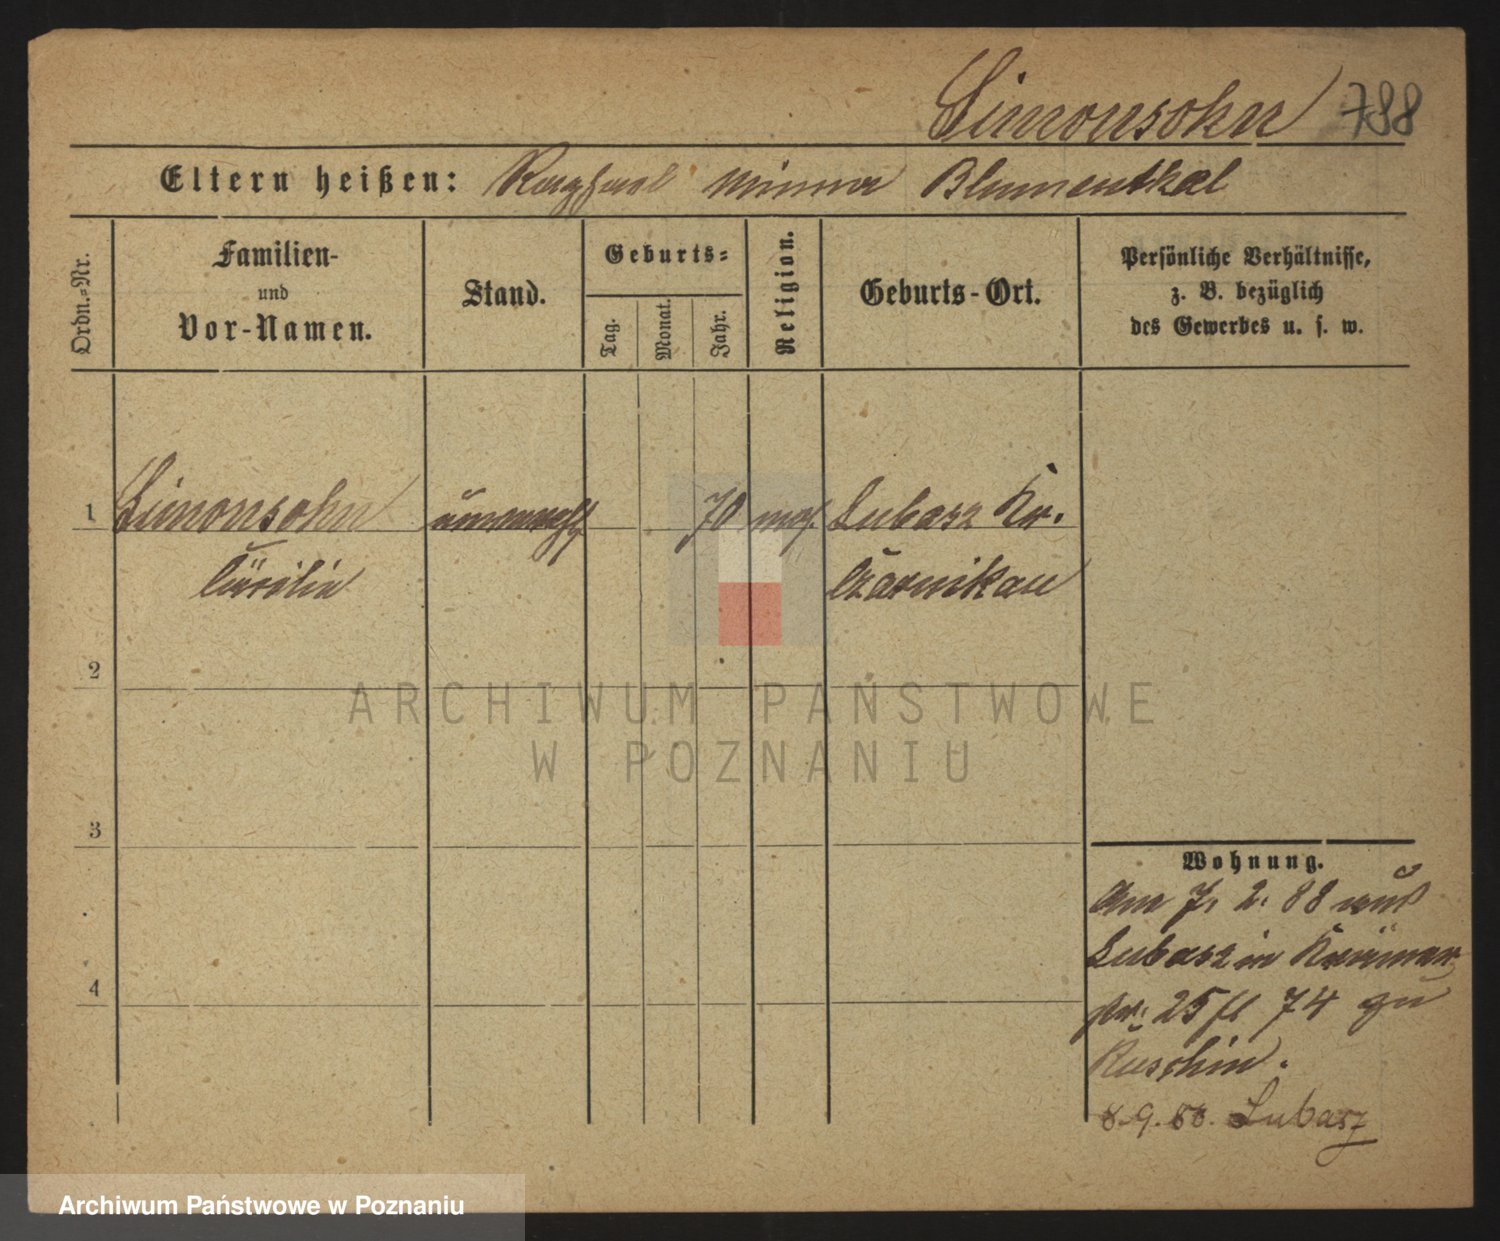 Simonsohn 788
Eltern heißen: Raphael Minna Blumenthal
Ordn.-Nr.
Familien-
und
Vor-Namen.
Stand.
Geburts-
Tag.
Monat.
Jahr.
Religion.
Geburts-Ort.
Persönliche Verhältnisse,
z. B. bezüglich
des Gewerbes u. s. w.
1 Simonsohn unvereh 70 mos. Lubasz Kr.
Cäcilie Czarnikau
2
3
4
Wohnung.
Am 7. 2. 88 aus
Lubasz in
str. 25 fl 74 zu
Ruschin.
8.9.88. Lubasz
ARCHIWUM PAŃSTWOWE
W POZNANIU
Archiwum Państwowe w Poznaniu